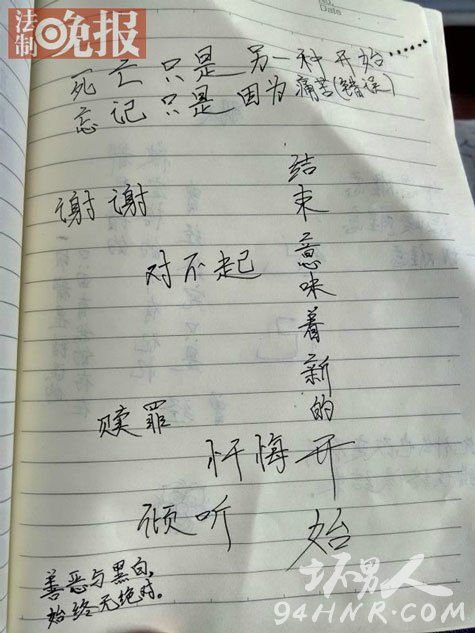 法制晚报
Date
死亡只是另一种开始……
忘记只是因为痛苦(错误)
谢谢
对不起
结束意味着新的开始
赎罪
忏悔
倾听
善恶与黑白,
始终无绝对。
坏男人
94HNR.COM